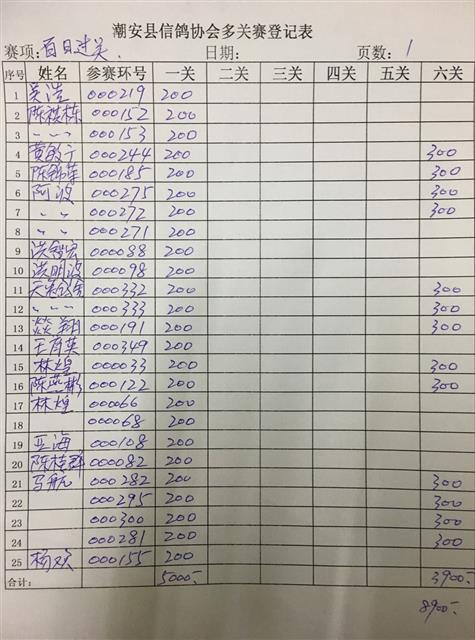 潮安县信鸽协会多关赛登记表
赛项: 百日过关 日期: 页数: 1
序号 姓名 参赛环号 一关 二关 三关 四关 五关 六关
1 吴浩 000219 200
2 陈祺栋 000152 200
3 〃 〃 〃 000153 200
4 黄敏宁 000244 200 300
5 陈锦荣 000185 200 300
6 阿波 000275 200 300
7 〃 〃 000272 200 300
8 〃 〃 000271 200
9 洪 宏 000088 200
10 洪明波 000098 200
11 000332 200 300
12 〃 〃 〃 000333 200 300
13 燚翔 000191 200 300
14 王育英 000349 200
15 林煌 000033 200 300
16 陈燕彬 000122 200 300
17 林煌 000066 200
18 000068 200
19 亚海 000108 200
20 陈桂群 000082 200
21 马航 000282 200 300
22 000295 200 300
23 000300 200 300
24 000281 200 300
25 杨欢 000155 200
合计: 5000.- 3900.-
8900.-